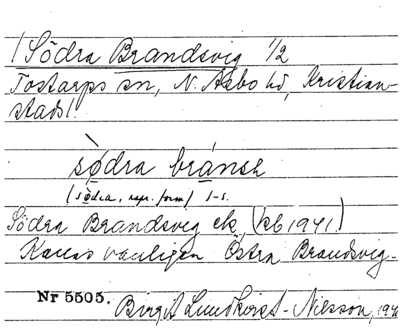 / Södra Brandsvig 1/2
Tostarps sn, N. Åsbo hd, Kristian-
stads l.
södra bränsk
(södra, repr. form) s-s.
Södra Brandsvig ek. (kb 1941)
Kallas vanligen Östra Brandsvig.
Nr 5505. Birgit Lundkvist-Nilsson,